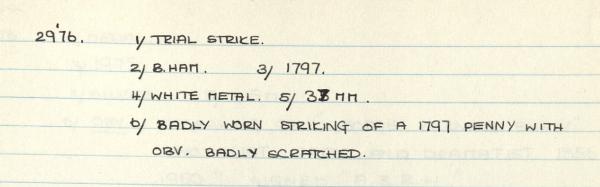 29'76. 1/ TRIAL STRIKE.
2/ B.HAM. 3/ 1797.
4/ WHITE METAL. 5/ 33 MM.
6/ BADLY WORN STRIKING OF A 1797 PENNY WITH
OBV. BADLY SCRATCHED.